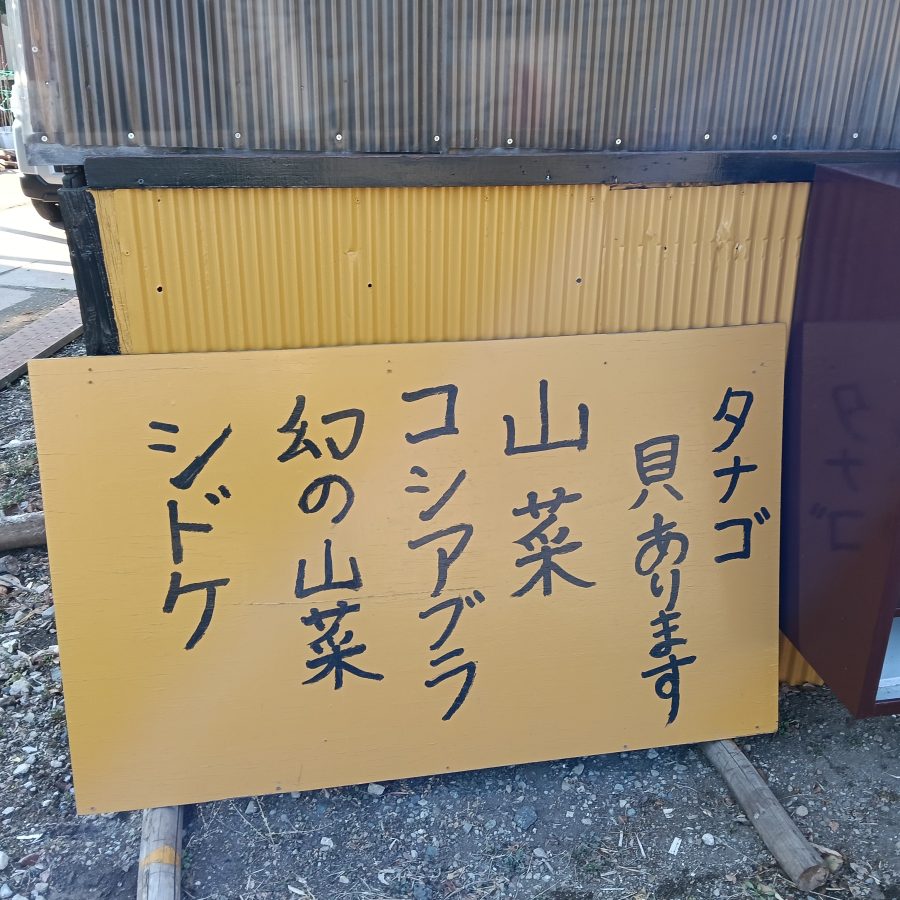 タナゴ
貝あります
山菜
コシアブラ
幻の山菜
シドケ